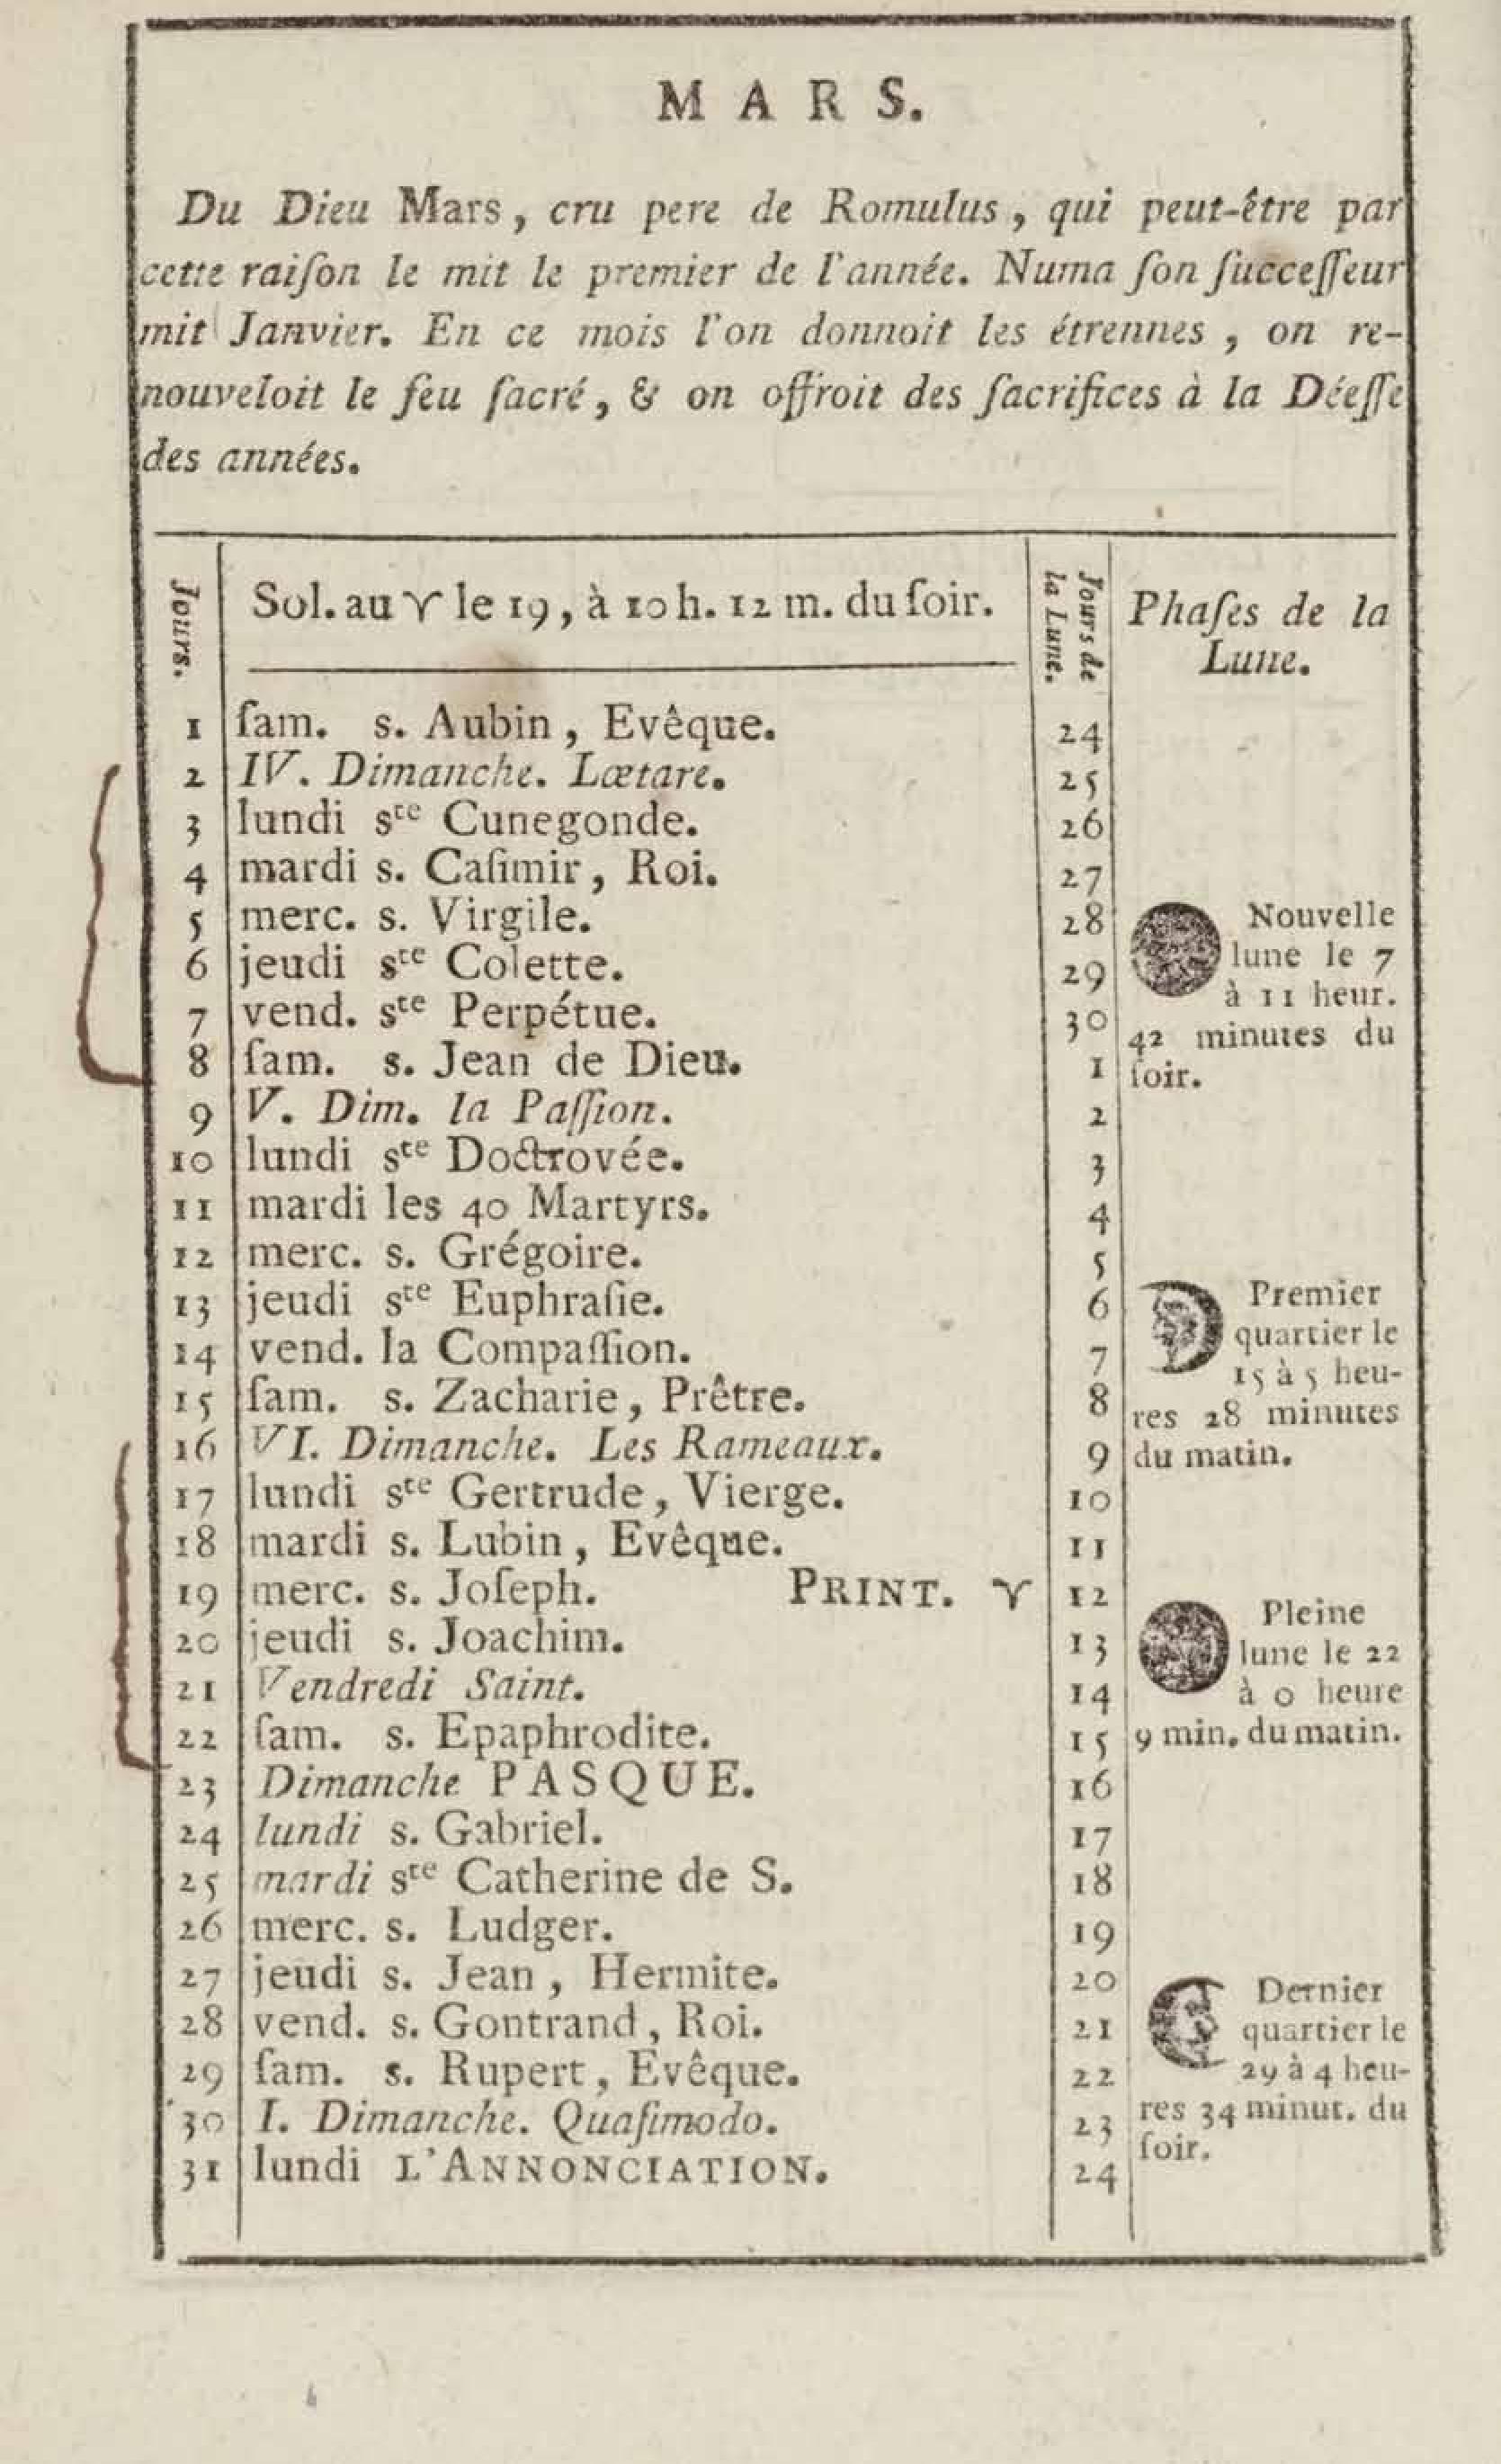 MARS.
Du Dieu Mars, cru pere de Romulus, qui peut-être par
cette raiſon le mit le premier de l'année. Numa ſon ſucceſſeur
mit Janvier. En ce mois l'on donnoit les étrennes, on re-
nouveloit le feu ſacré, & on offroit des ſacrifices à la Déeſſe
des années.
Jours.
Sol. au ♈ le 19, à 10 h. 12 m. du ſoir.
Jours de
la Lune.
Phaſes de la
Lune.
1 ſam. s. Aubin, Evêque. 24
2 IV. Dimanche. Lætare. 25
3 lundi ste Cunegonde. 26
4 mardi s. Caſimir, Roi. 27
5 merc. s. Virgile. 28
6 jeudi ste Colette. 29
7 vend. ste Perpétue. 30
8 ſam. s. Jean de Dieu. 1
9 V. Dim. la Paſſion. 2
10 lundi ste Doctrovée. 3
11 mardi les 40 Martyrs. 4
12 merc. s. Grégoire. 5
13 jeudi ste Euphraſie. 6
14 vend. la Compaſſion. 7
15 ſam. s. Zacharie, Prêtre. 8
16 VI. Dimanche. Les Rameaux. 9
17 lundi ste Gertrude, Vierge. 10
18 mardi s. Lubin, Evêque. 11
19 merc. s. Joſeph. PRINT. ♈ 12
20 jeudi s. Joachim. 13
21 Vendredi Saint. 14
22 ſam. s. Epaphrodite. 15
23 Dimanche PASQUE. 16
24 lundi s. Gabriel. 17
25 mardi ste Catherine de S. 18
26 merc. s. Ludger. 19
27 jeudi s. Jean, Hermite. 20
28 vend. s. Gontrand, Roi. 21
29 ſam. s. Rupert, Evêque. 22
30 I. Dimanche. Quaſimodo. 23
31 lundi L'ANNONCIATION. 24
Nouvelle
lune le 7
à 11 heur.
42 minutes du
ſoir.
Premier
quartier le
15 à 5 heu-
res 28 minutes
du matin.
Pleine
lune le 22
à 0 heure
9 min. du matin.
Dernier
quartier le
29 à 4 heu-
res 34 minut. du
ſoir.